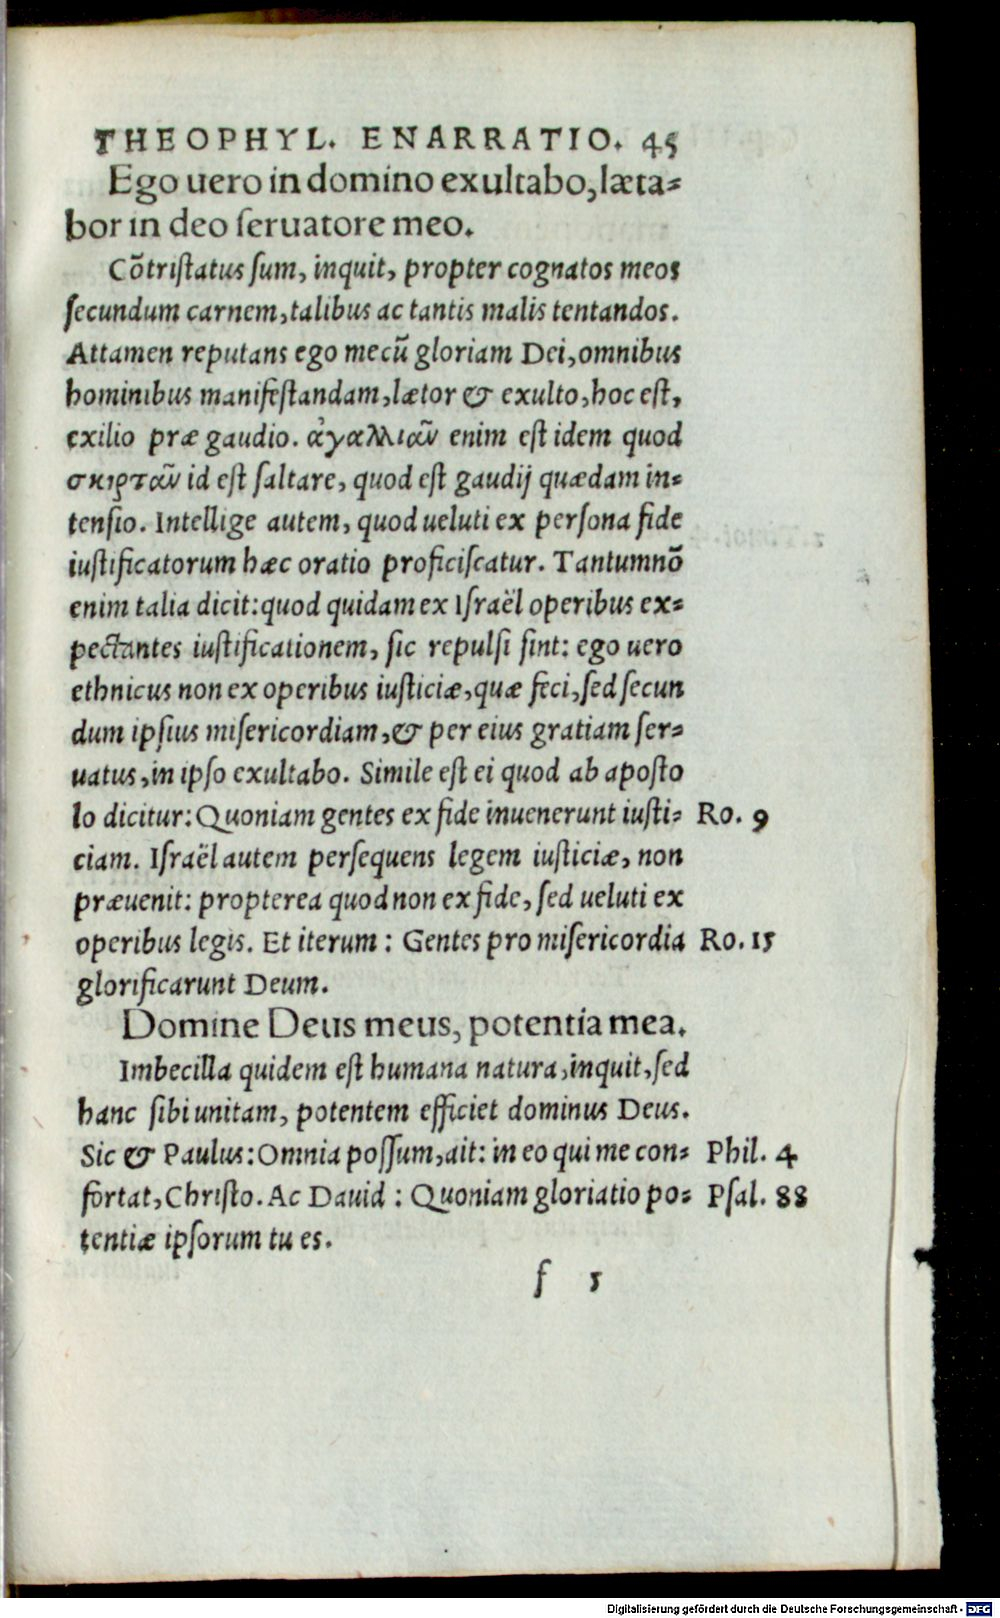 THEOPHYL. ENARRATIO. 45
Ego uero in domino exultabo, læta-
bor in deo ſeruatore meo.
Cõtriſtatus ſum, inquit, propter cognatos meos
ſecundum carnem, talibus ac tantis malis tentandos.
Attamen reputans ego mecũ gloriam Dei, omnibus
hominibus manifeſtandam, lætor & exulto, hoc eſt,
exilio præ gaudio. ἀγαλλιᾶν enim eſt idem quod
σκιρτᾶν id eſt ſaltare, quod eſt gaudij quædam in-
tenſio. Intellige autem, quod ueluti ex perſona fide
iuſtificatorum hæc oratio proficiſcatur. Tantumnõ
enim talia dicit: quod quidam ex Iſraël operibus ex-
pectantes iuſtificationem, ſic repulſi ſint: ego uero
ethnicus non ex operibus iuſticiæ, quæ feci, ſed ſecun
dum ipſius miſericordiam, & per eius gratiam ſer-
uatus, in ipſo exultabo. Simile eſt ei quod ab apoſto
lo dicitur: Quoniam gentes ex fide inuenerunt iuſti- Ro. 9
ciam. Iſraël autem perſequens legem iuſticiæ, non
præuenit: propterea quod non ex fide, ſed ueluti ex
operibus legis. Et iterum: Gentes pro miſericordia Ro. 15
glorificarunt Deum.
Domine Deus meus, potentia mea.
Imbecilla quidem eſt humana natura, inquit, ſed
hanc ſibi unitam, potentem efficiet dominus Deus.
Sic & Paulus: Omnia poſſum, ait: in eo qui me con- Phil. 4
fortat, Chriſto. Ac Dauid: Quoniam gloriatio po- Pſal. 88
tentiæ ipſorum tu es.
f 5
Digitalisierung gefördert durch die Deutsche Forschungsgemeinschaft - DFG